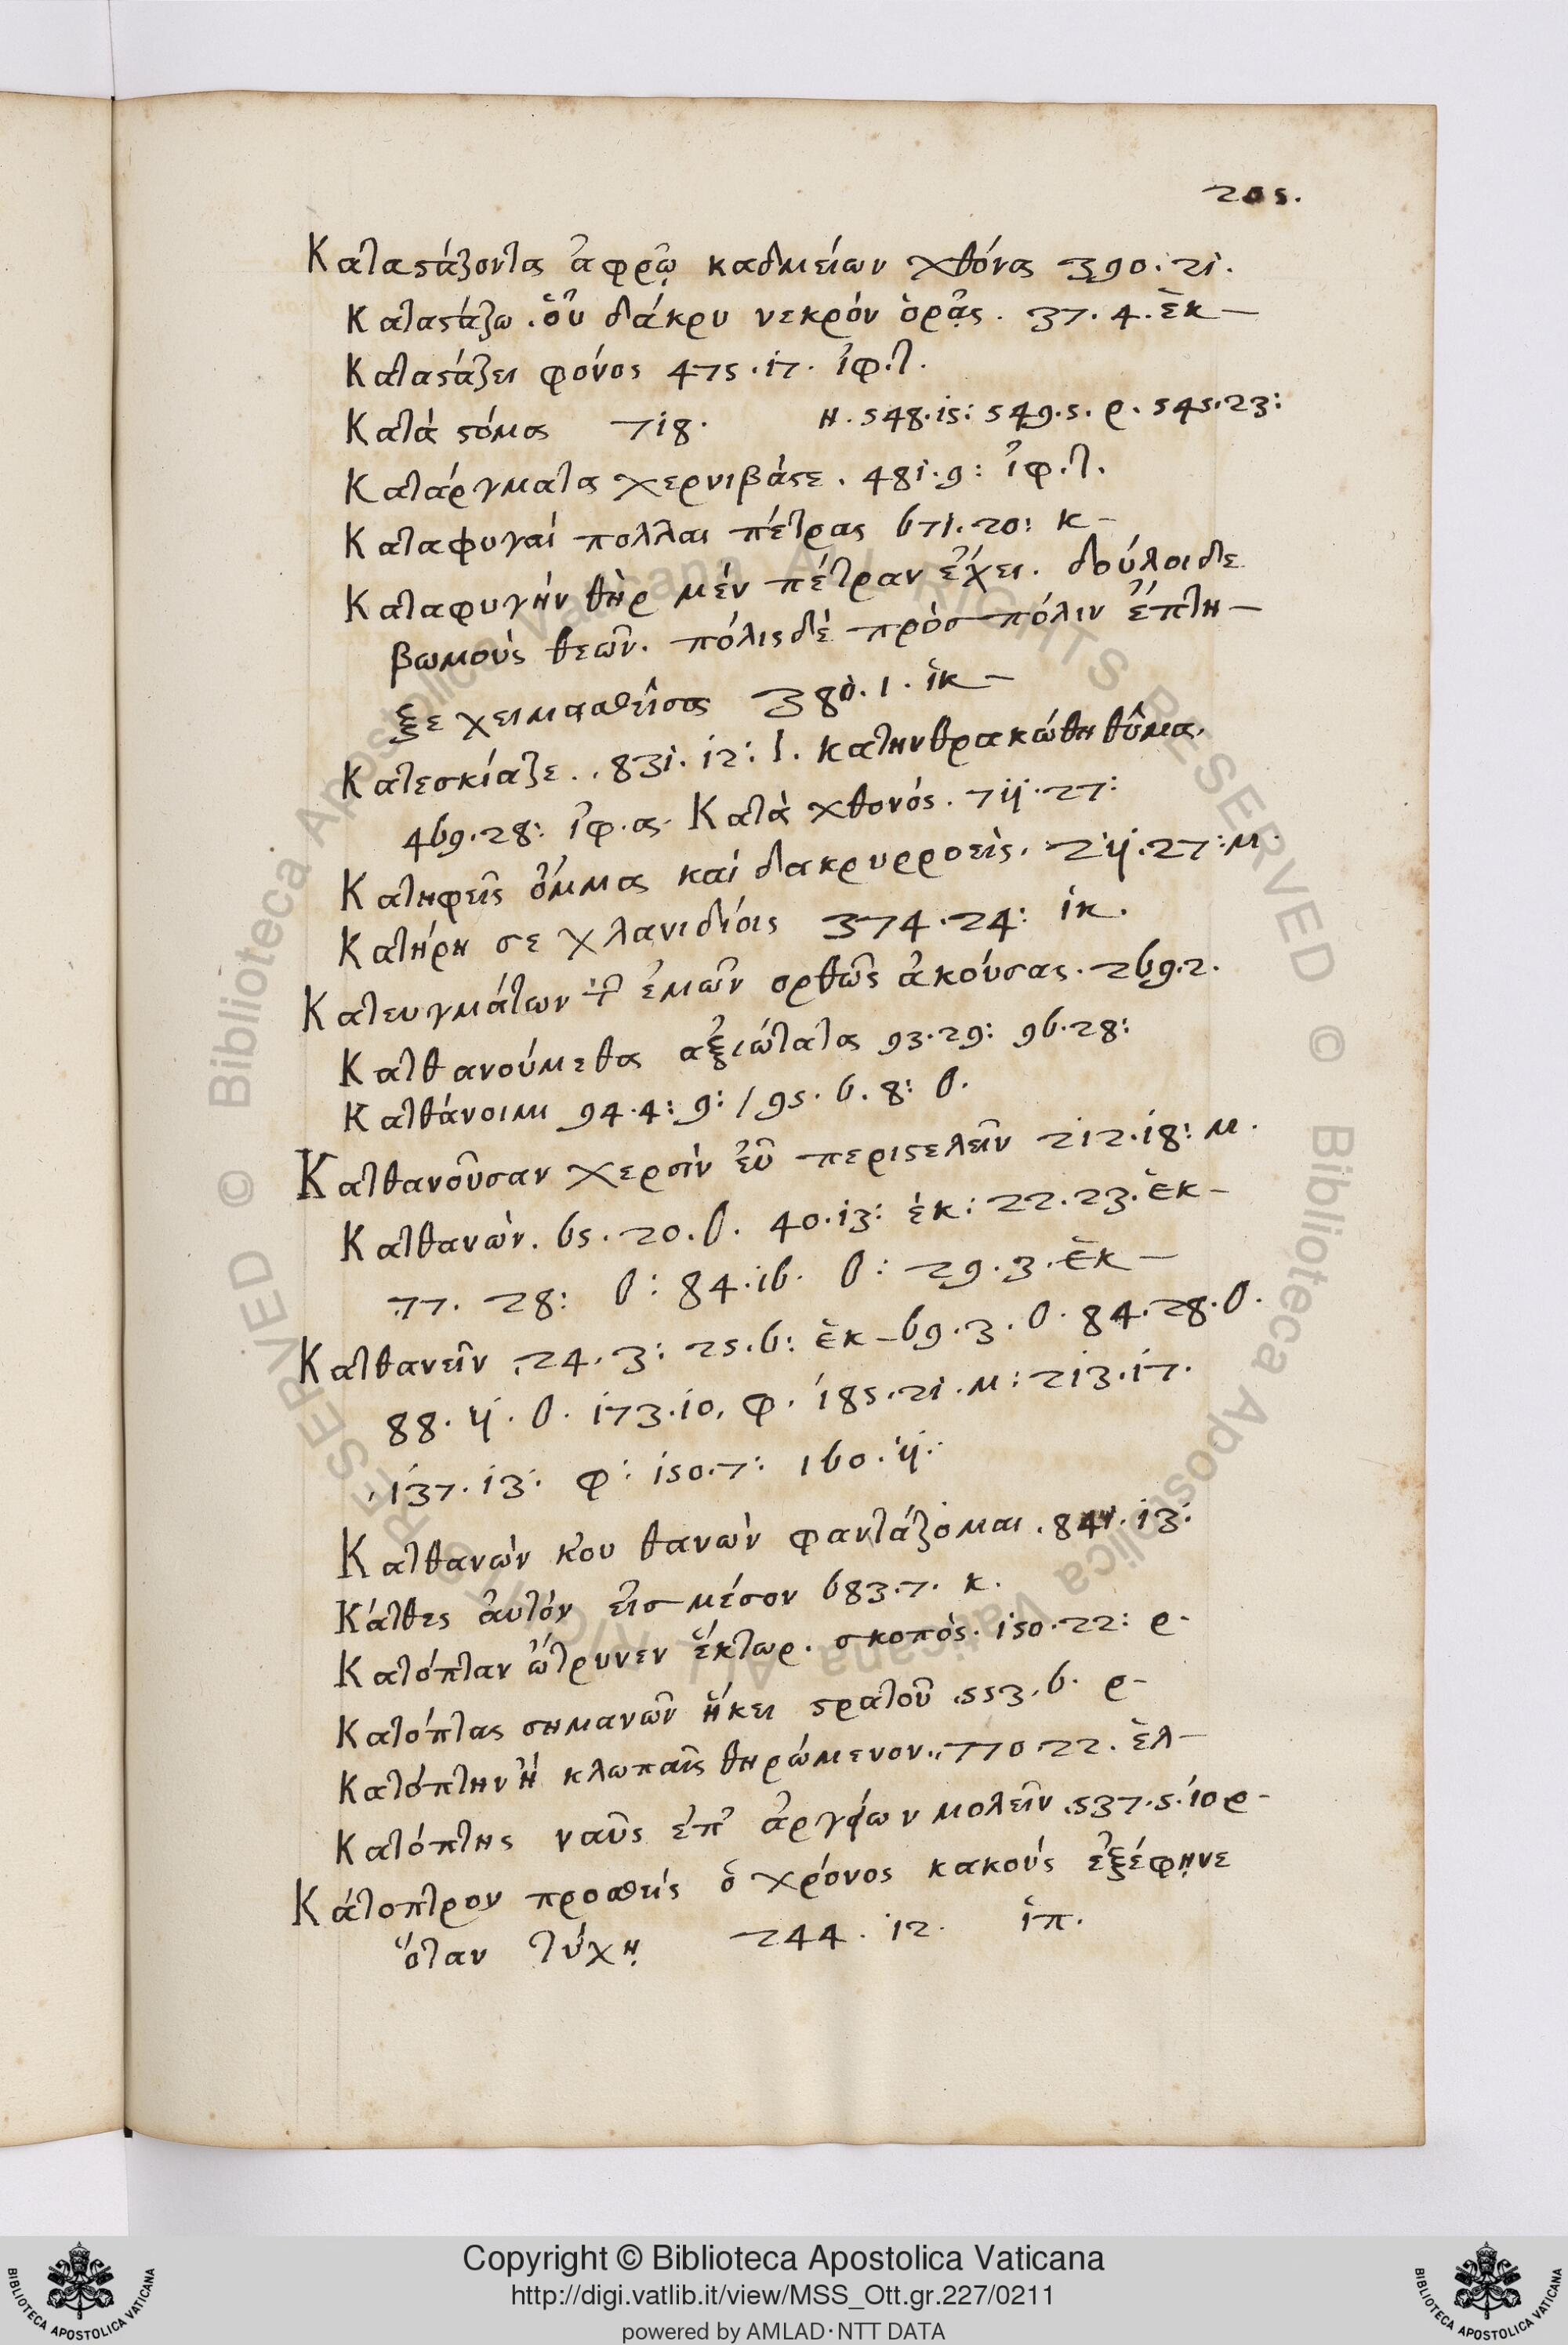 205.
Καταϛάζοντα ἀφρῷ καδμείων χθόνα 390.21.
Καταϛάζω. οὗ δάκρυ νεκρόν ὁρᾷς. 37.4. ἑκ—
Καταϛάζει φόνος 475.17. ἰφ.τ.
Κατά ϛόμα 718. н. 548.15: 549.5. ρ. 545.23:
Κατάργματα χερνιβάϛε. 481.9: ἰφ.τ.
Καταφυγαί πολλαι πέτρας 671.20: κ—
Καταφυγήν θὴρ μέν πέτραν ἔχει. δούλοι δε
βωμούς θεῶν. πόλις δὲ πρὸσ πόλιν ἔπτη—
ξε χειμασθεῖσα 380.1. ἱκ—
Κατεσκίαζε.. 831.12: Ι. κατηνθρακώθη θῦμα.
469.28: ἰφ.α. Κατὰ χθονός. 711.27:
Κατηφεῖς ὄμμα καί δακρυρροεῖς. 211.27: μ.
Κατήρη σε χλανιδίοις 374.24: ἱκ.
Κατευγμάτων ἐμῶν ορθῶς ἀκούσας. 269.2.
Κατθανούμεθα αξιώτατα 93.29: 96.28:
Κατθάνοιμι 94.4: 9: / 95. 6. 8: ο.
Κατθανοῦσαν χερσὶν εὖ περιϛελεῖν 212.18: μ.
Κατθανών. 65.20. ο. 40.13: ἑκ: 22.23. ἑκ—
77. 28: ο: 84.16. ο: 29.3. ἑκ—
Κατθανεῖν 24.3: 25.6: ἑκ— 69.3. ο. 84.28. ο.
88. 11. ο. 173.10. φ. 185.21. μ: 213.17.
137.13: φ: 150.7: 160.11:
Κατθανὼν κ'ου θανὼν φαντάζομαι. 13:
Κάτθες ἀυτόν εἰσ μέσον 683.7. κ.
Κατόπταν ὤτρυνεν ἕκτωρ. σκοπὸς. 150.22: ρ.
Κατόπτας σημανῶν ἥκει ϛρατοῦ 553.6. ρ—
Κατόπτην ἢ κλωπαῖς θηρώμενον. 770.22. ἑλ—
Κατόπτης ναῦς ἐπ' ἀργείων μολεῖν 537.5.10 ρ—
Κάτοπτρον προθείς ὁ χρόνος κακούς ἐξέφηνε
ὅταν τύχῃ 244. 12. ἱπ.
Copyright © Biblioteca Apostolica Vaticana
http://digi.vatlib.it/view/MSS_Ott.gr.227/0211
powered by AMLAD·NTT DATA